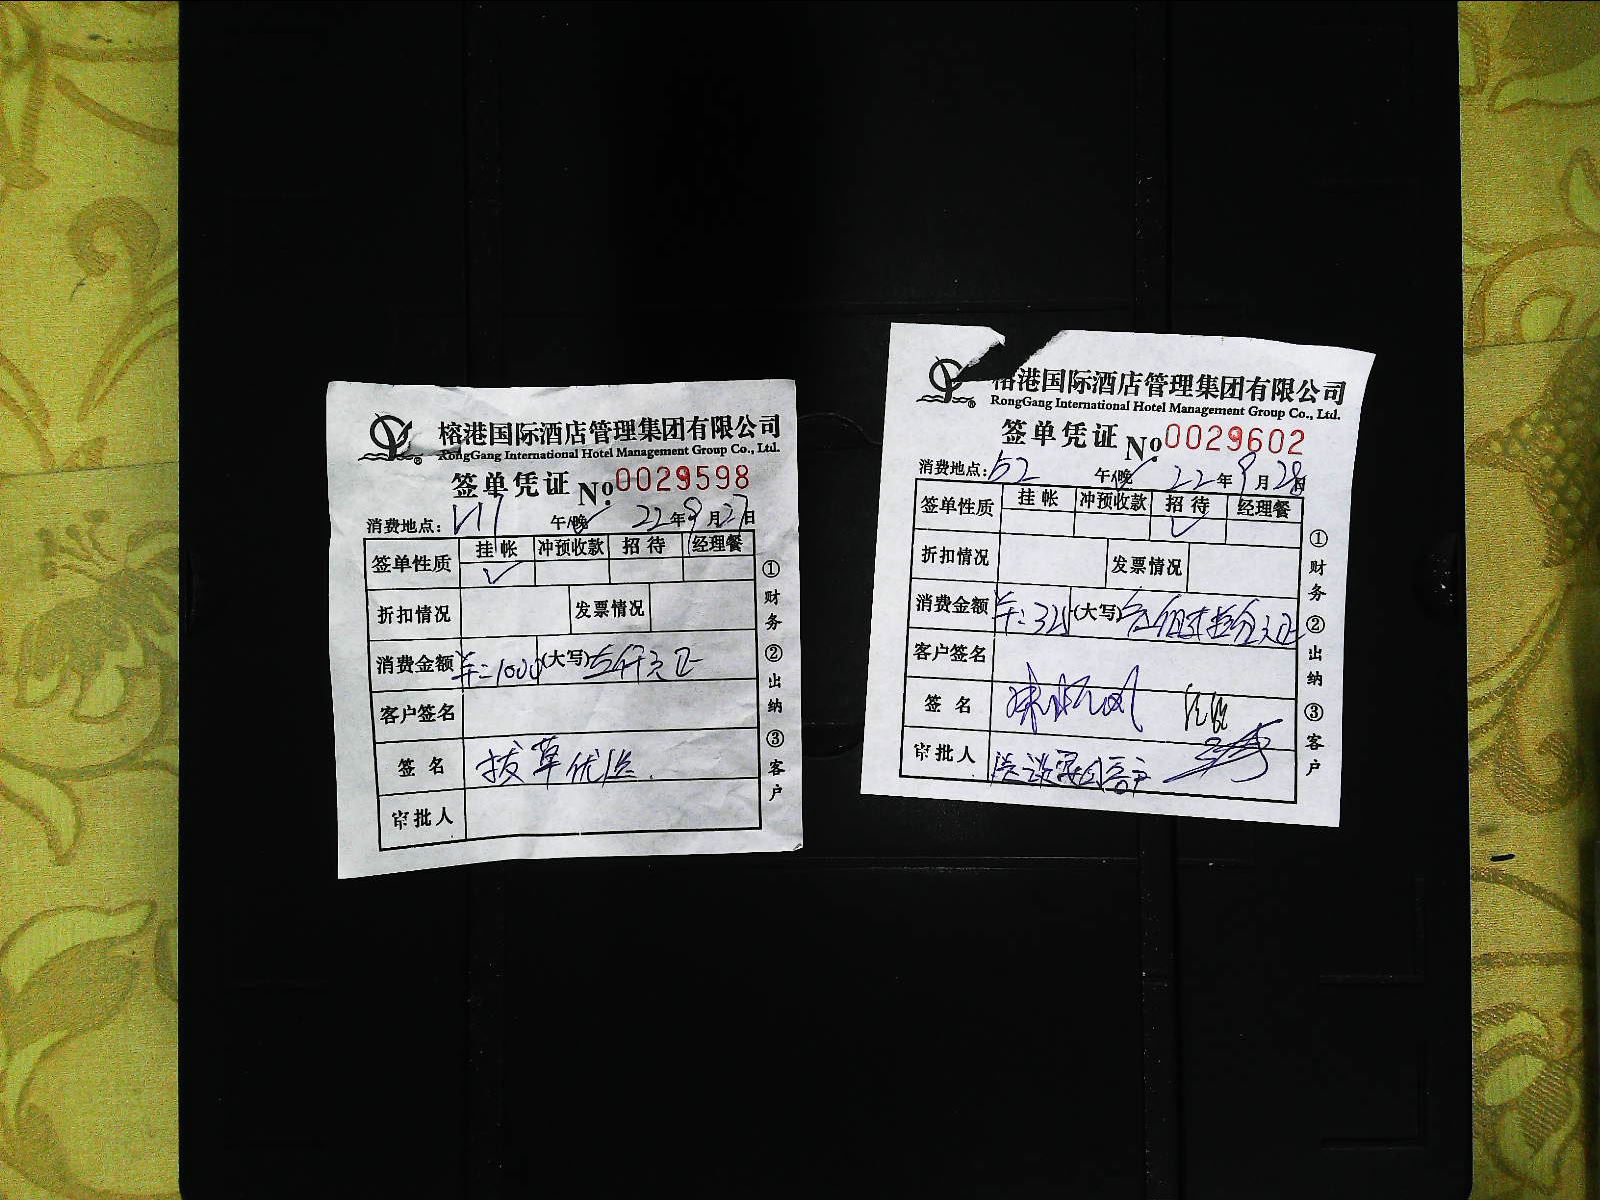 榕港国际酒店管理集团有限公司
RongGang International Hotel Management Group Co., Ltd.
签单凭证 No. 0029598
消费地点: V17 午/晚 22年9月27日
签单性质 挂帐 冲预收款 招待 经理餐
折扣情况 发票情况
消费金额 1000 (大写) 仟元正
客户签名
签名 拔草优惠
审批人
①财务 ②出纳 ③客户
榕港国际酒店管理集团有限公司
RongGang International Hotel Management Group Co., Ltd.
签单凭证 No. 0029602
消费地点: 午/晚 22年9月28日
签单性质 挂帐 冲预收款 招待 经理餐
折扣情况 发票情况
消费金额 (大写)
客户签名
签名
审批人
①财务 ②出纳 ③客户